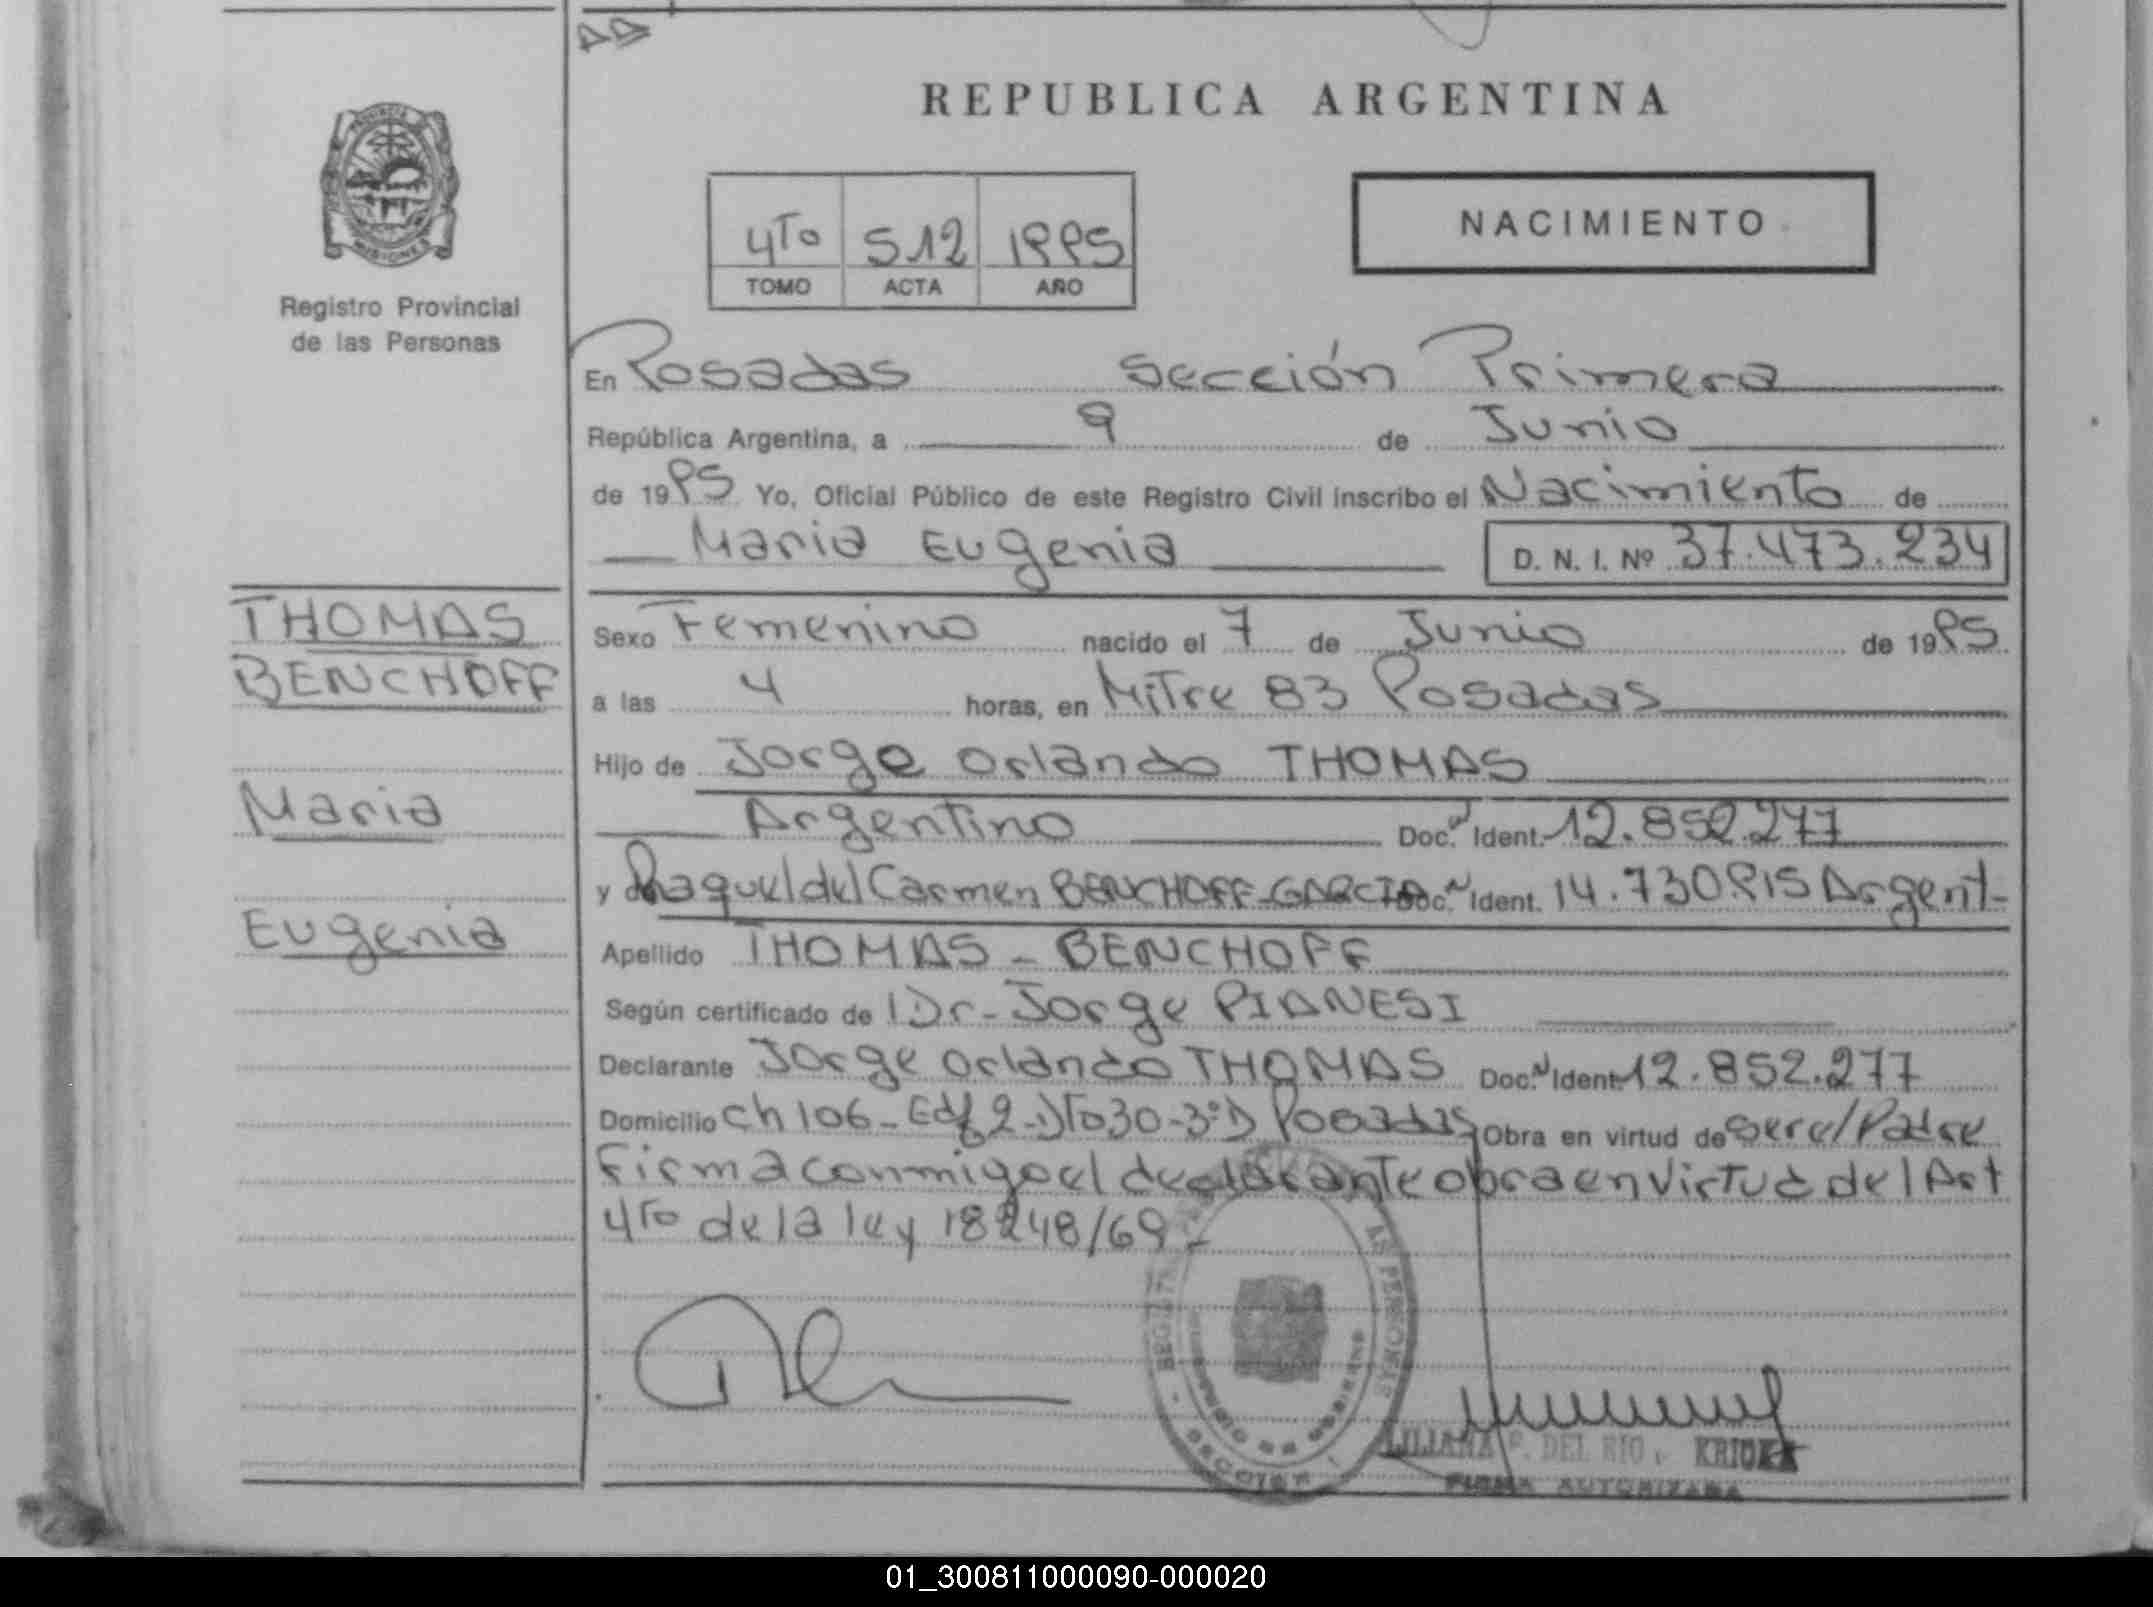 REPUBLICA ARGENTINA
PROVINCIA DE
MISIONES
Registro Provincial
de las Personas
4To 512 1995
TOMO ACTA AÑO
NACIMIENTO
En Posadas Sección Primera
República Argentina, a 9 de Junio
de 1995 Yo, Oficial Público de este Registro Civil inscribo el Nacimiento de
Maria Eugenia D. N. I. Nº 37.473.234
THOMAS
BENCHOFF
Maria
Eugenia
Sexo Femenino nacido el 7 de Junio de 1995
a las 4 horas, en Mitre 83 Posadas
Hijo de Jorge Orlando THOMAS
Argentino Doc. Ident. 12.852.277
y de Raquel del Carmen BENCHOFF-GARCIA Doc. Ident. 14.730915 Argent-
Apellido THOMAS - BENCHOFF
Según certificado de Dr- Jorge PIANESI
Declarante Jorge Orlando THOMAS Doc. Ident 12.852.277
Domicilio Ch 106- Edf 2-DTo 30-3ºD Posadas Obra en virtud de ser el Padre
Firma conmigo el declarante obra en virtud del Art
4To de la ley 18248/69-
LILIANA F. DEL RIO
FIRMA AUTORIZADA
01_300811000090-000020